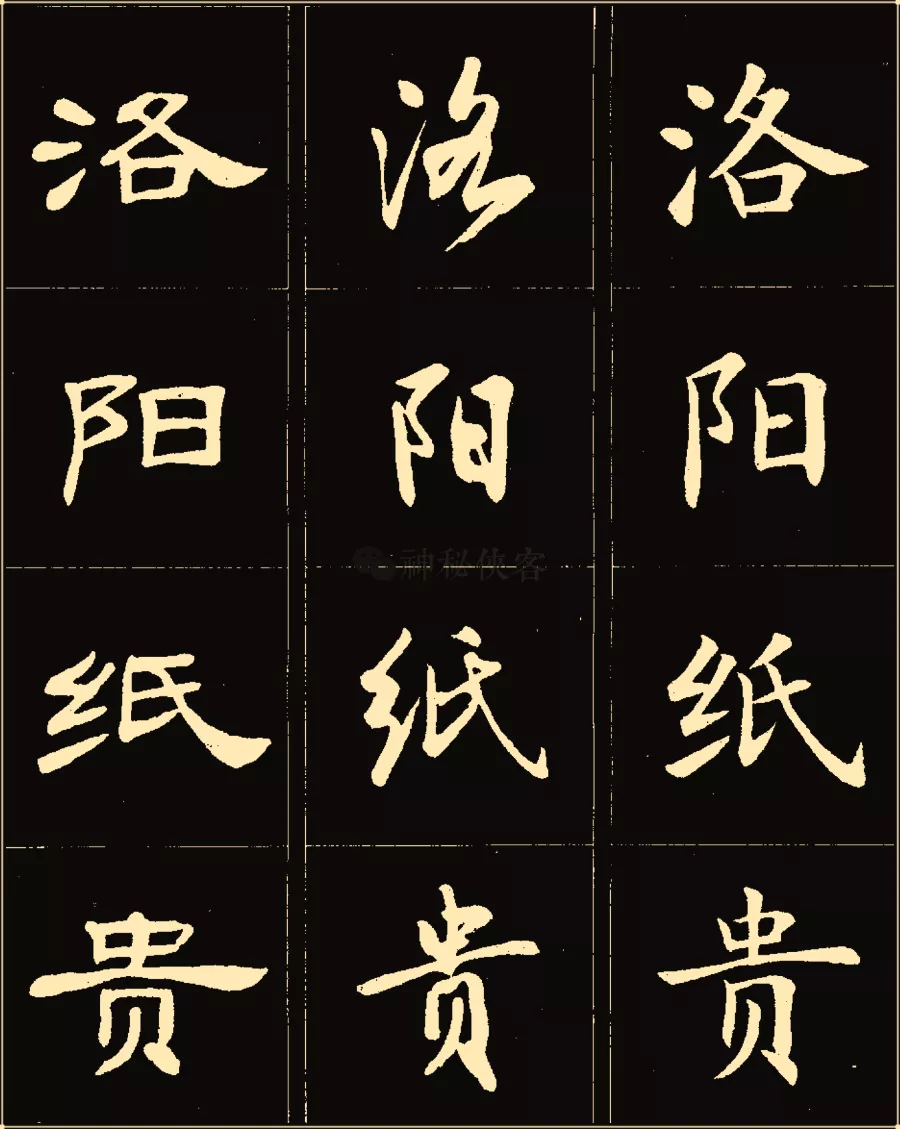 洛阳纸贵
洛阳纸贵
洛阳纸贵
神秘侠客